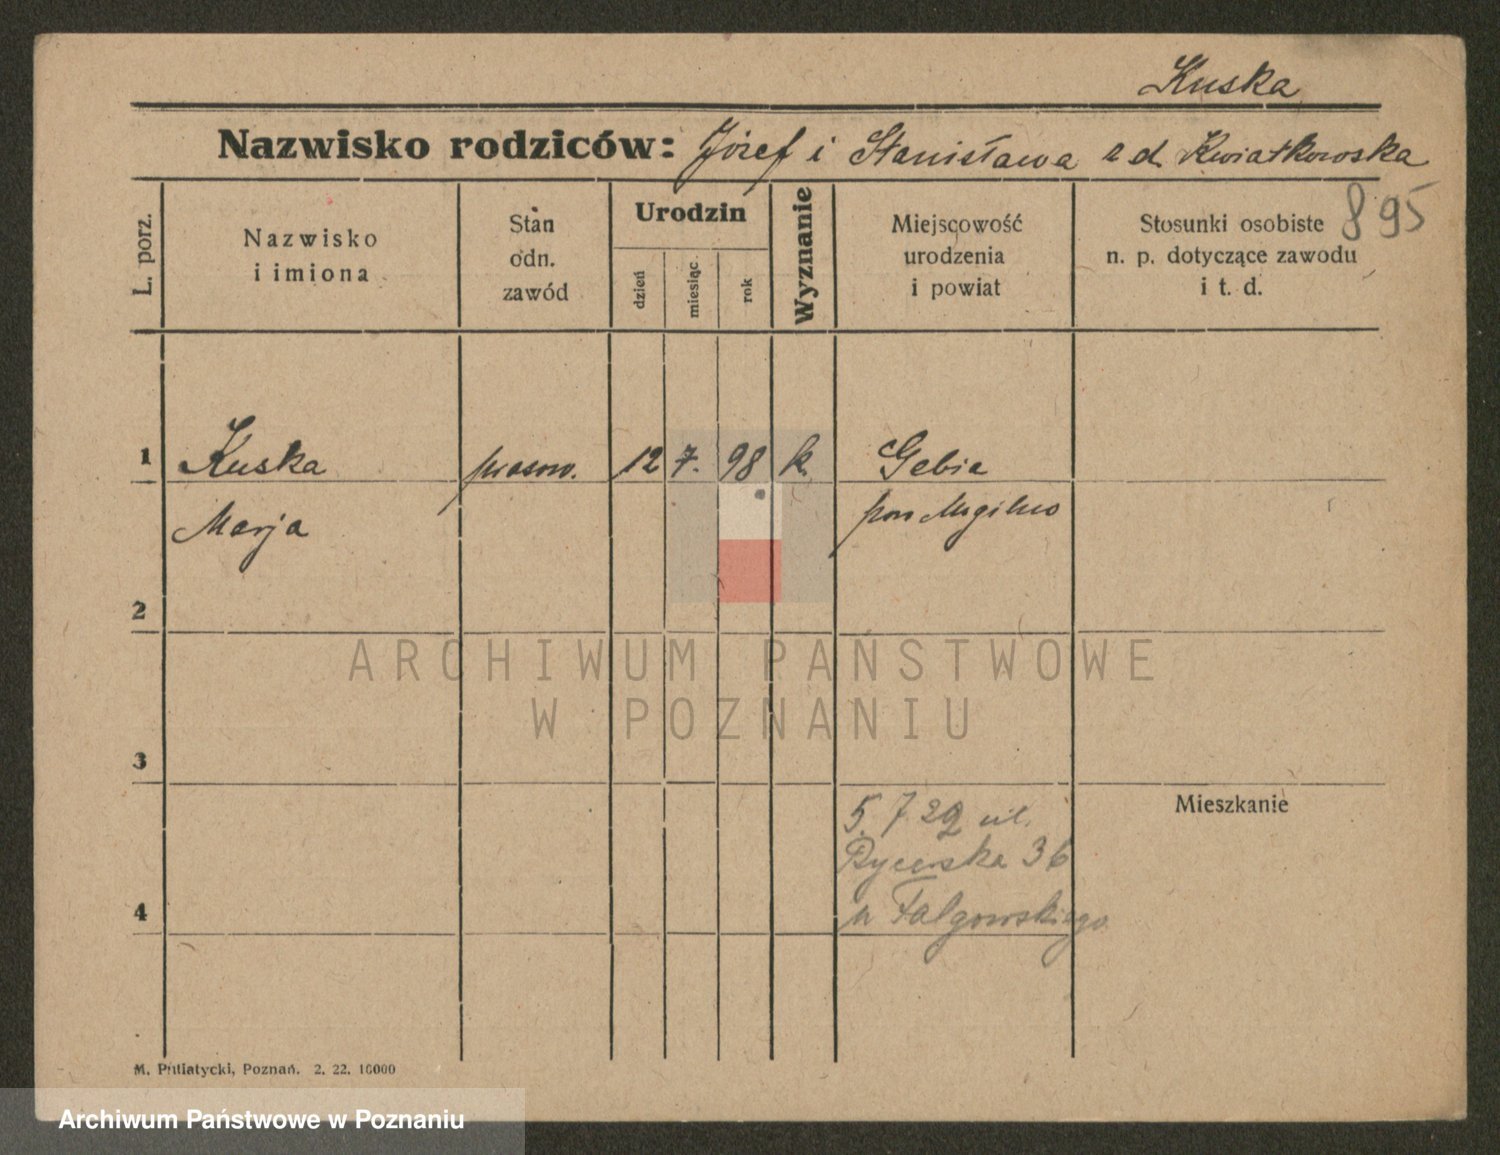 Kuska
Nazwisko rodziców: Józef i Stanisława z d. Kwiatkowska
895
L. porz.
Nazwisko
i imiona
Stan
odn.
zawód
Urodzin
dzień
miesiąc
rok
Wyznanie
Miejscowość
urodzenia
i powiat
Stosunki osobiste
n. p. dotyczące zawodu
i t. d.
1 Kuska prasow. 12 7. 98 k. Gębia
Marja pow Mogilno
2
ARCHIWUM PAŃSTWOWE
W POZNANIU
3
Mieszkanie
5. 7 29 ul.
Rycerska 36
4 u Falgowskiego
M. Putiatycki, Poznań. 2. 22. 10000
Archiwum Państwowe w Poznaniu